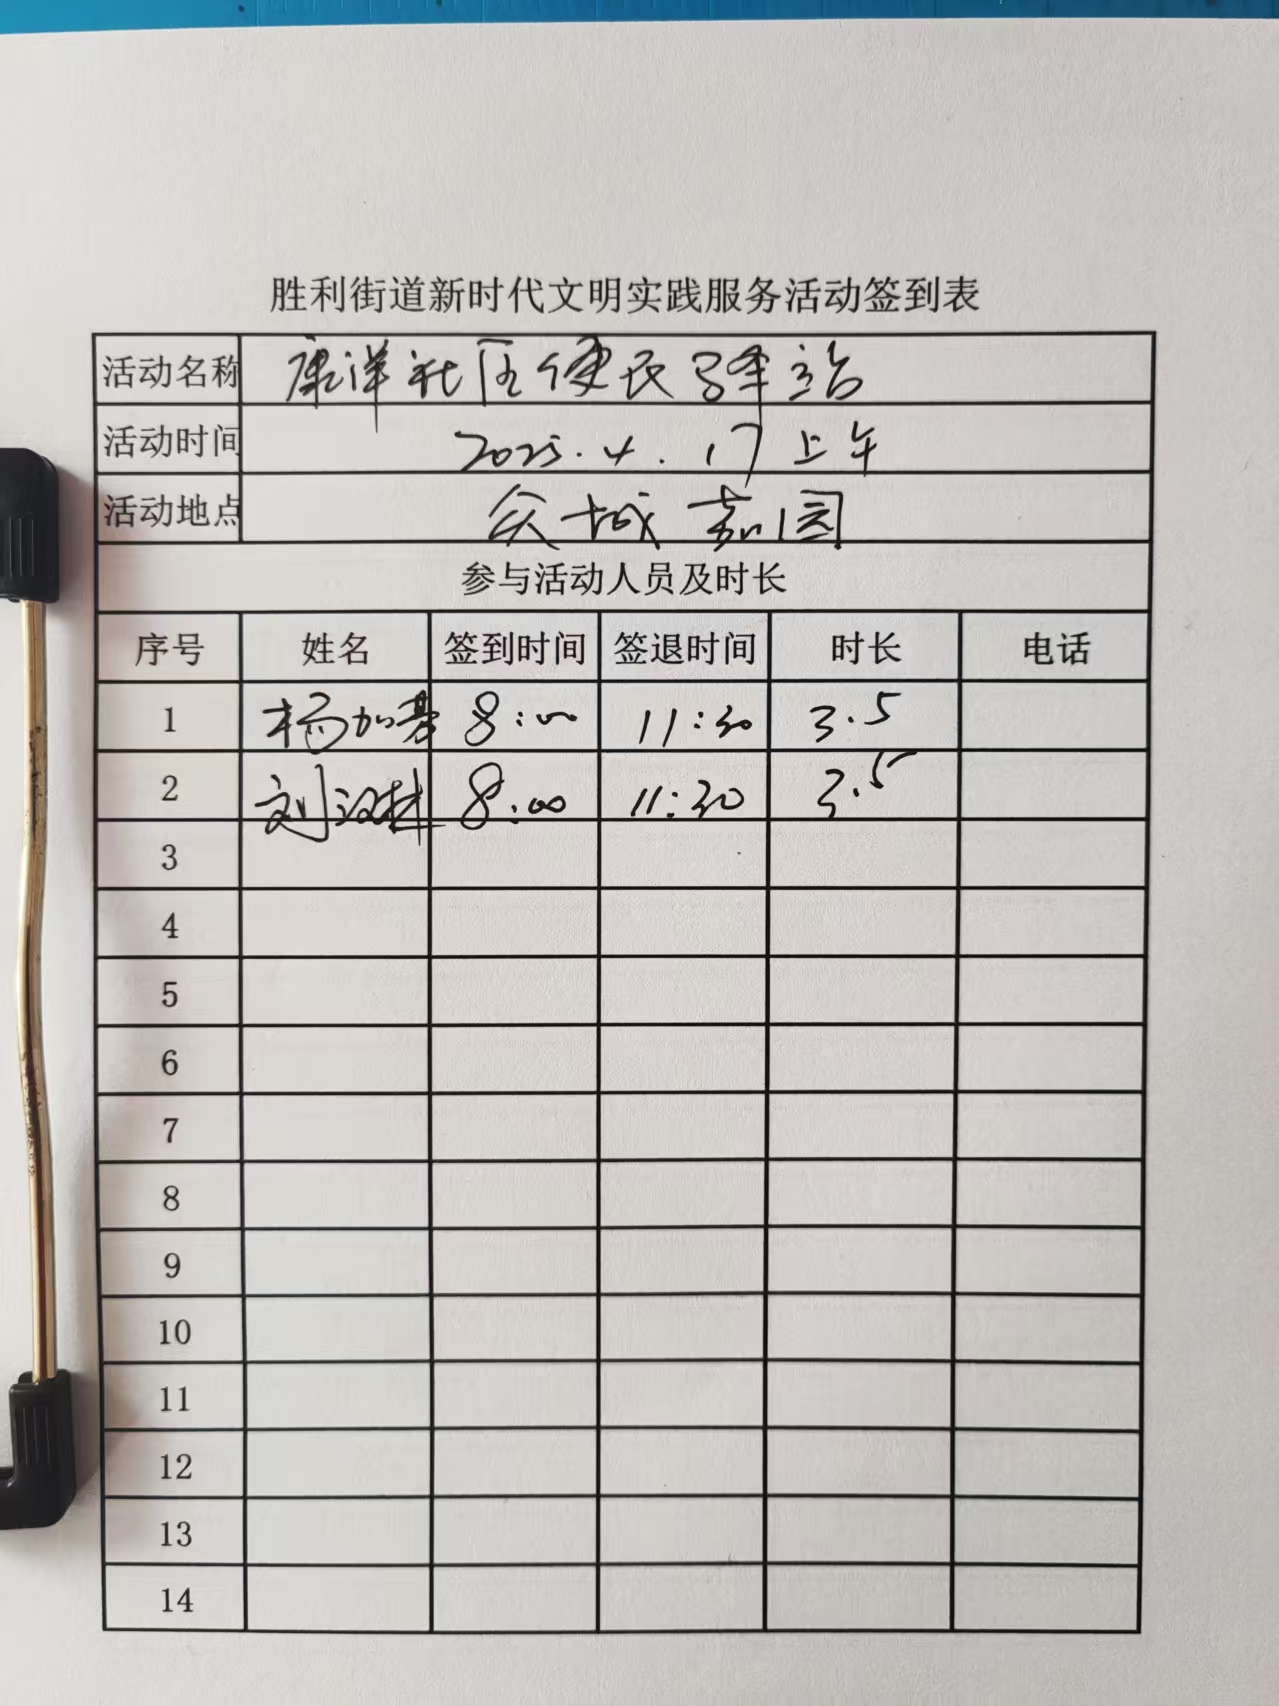 胜利街道新时代文明实践服务活动签到表
活动名称 康洋社区便民驿站
活动时间 2025.4.17上午
活动地点 众城嘉园
参与活动人员及时长
序号 姓名 签到时间 签退时间 时长 电话
1 杨加 8:00 11:30 3.5
2 刘汉林 8:00 11:30 3.5
3
4
5
6
7
8
9
10
11
12
13
14